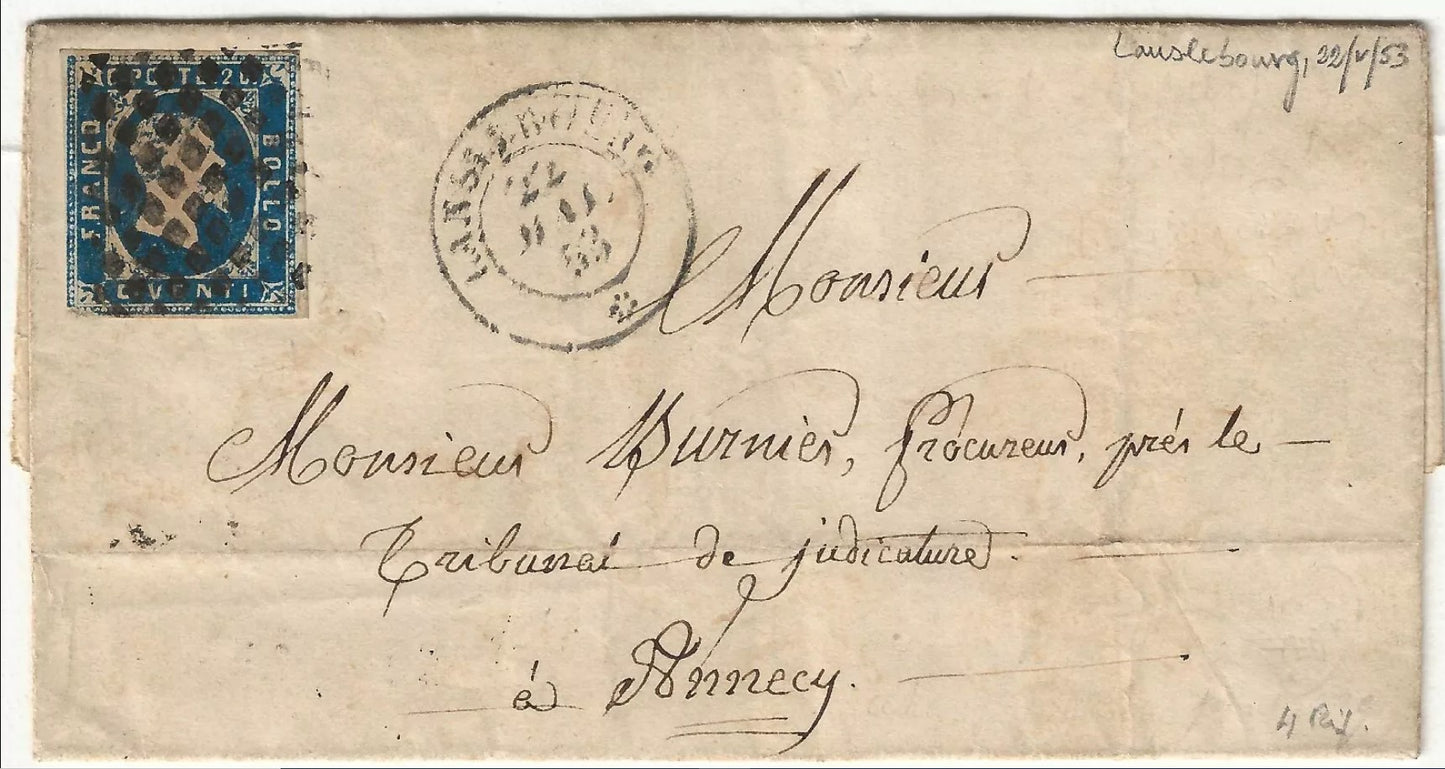 Lanslebourg, 22/V/53
C. POSTE 20
FRANCO
BOLLO
C. VENTI
LANSLEBOURG
22
MAI
53
Monsieur
Monsieur Burnier, Procureur, près le
Tribunal de judicature
à Annecy.
4 Rif.